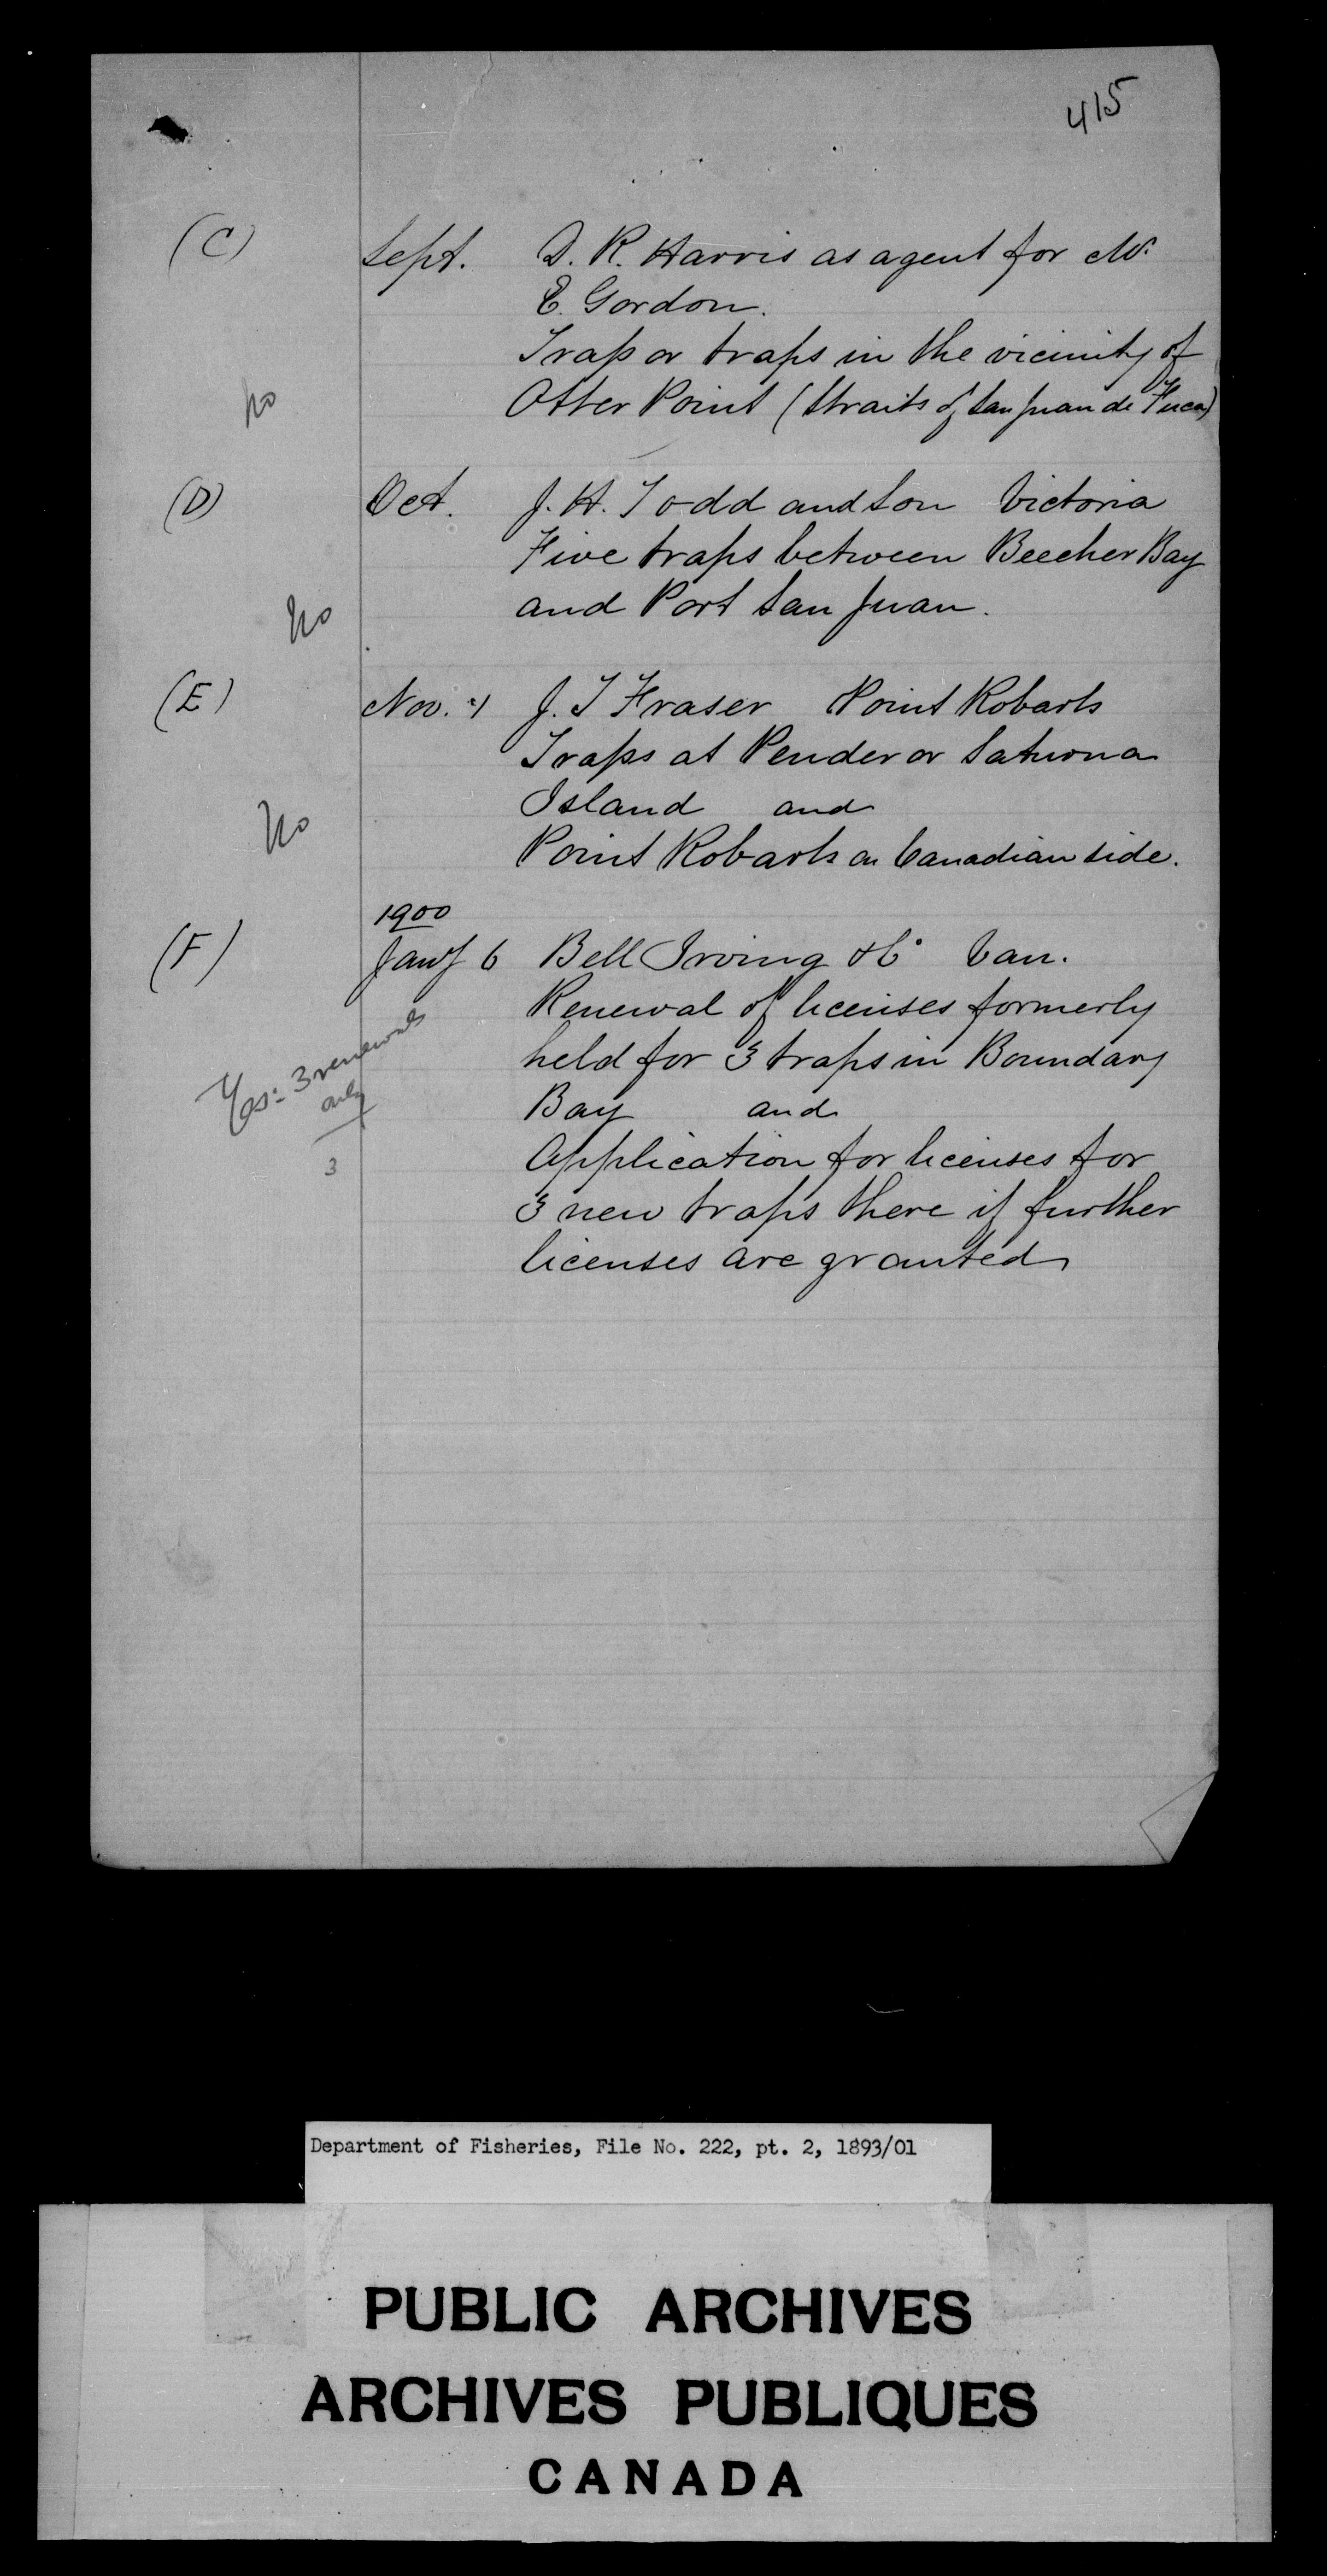 415
(C) Sept. D. R. Harris as agent for Mr.
E. Gordon.
Trap or traps in the vicinity of
no Otter Point (Straits of San Juan de Fuca)
(D) Oct. J. H. Todd and Son Victoria
Five traps between Beecher Bay
no and Port San Juan.
(E) Nov. 21 J. T Fraser Point Robarts
Traps at Pender or Saturna
Island and
no Point Robarts on Canadian side.
1900
(F) Jany 6 Bell Irving & Co Van.
Renewal of licenses formerly
Yes: 3 renewals held for 3 traps in Boundary
only Bay and
3 Application for licenses for
3 new traps there if further
licenses are granted
Department of Fisheries, File No. 222, pt. 2, 1893/01
PUBLIC ARCHIVES
ARCHIVES PUBLIQUES
CANADA